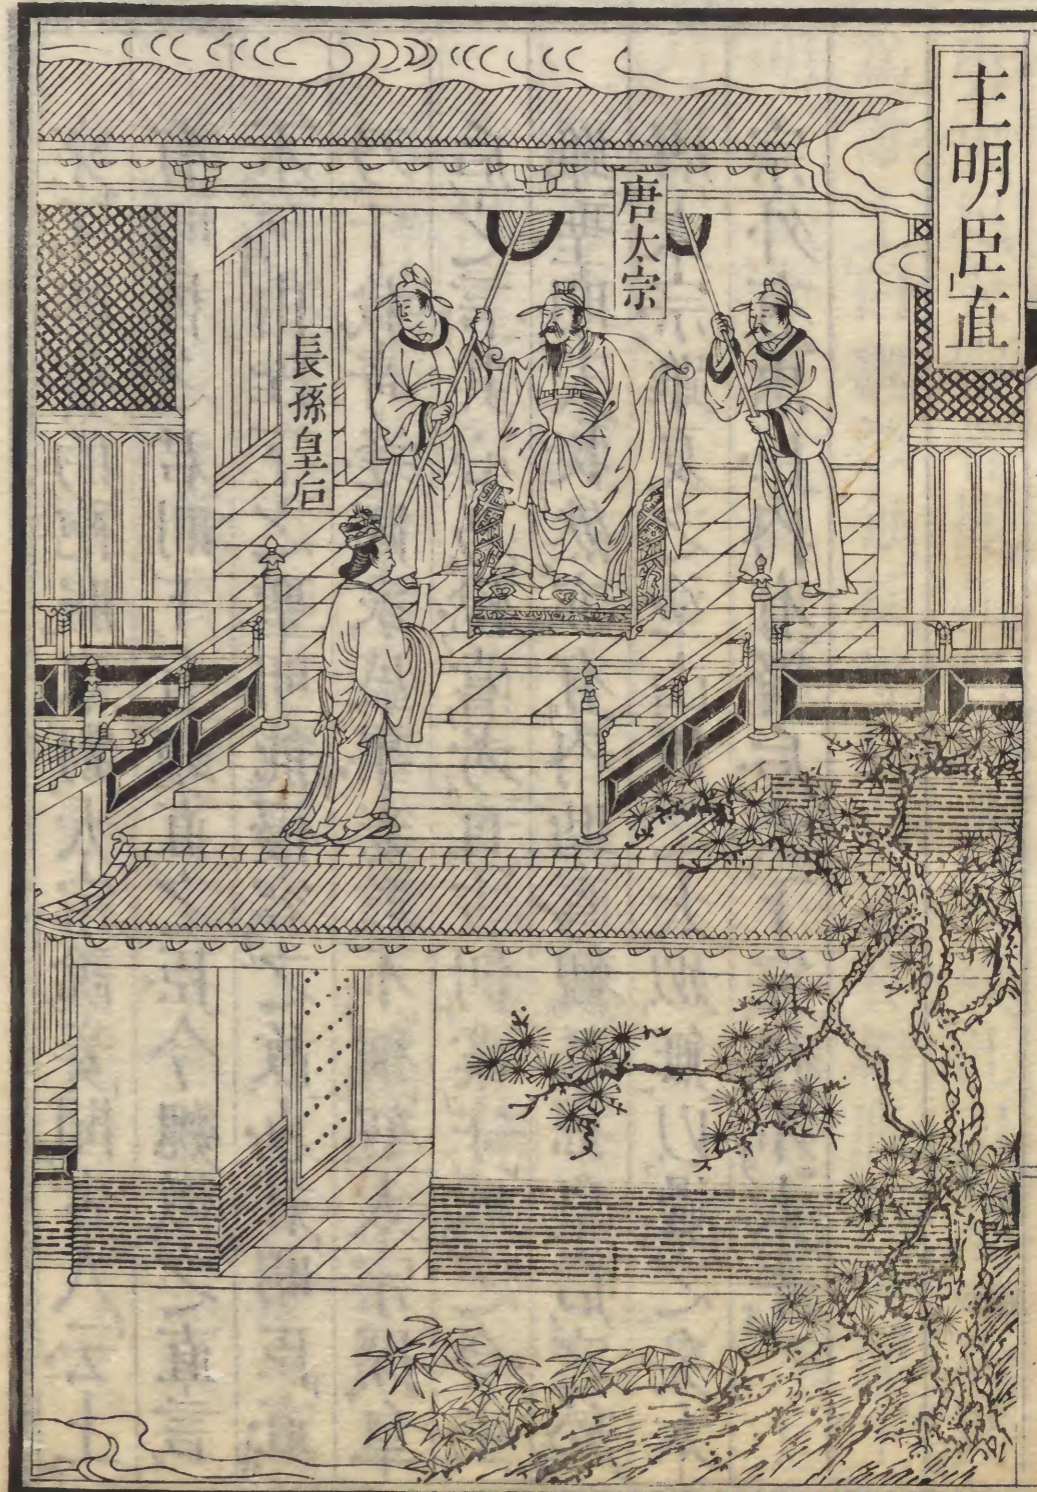 主明臣直
唐太宗
長孫皇后